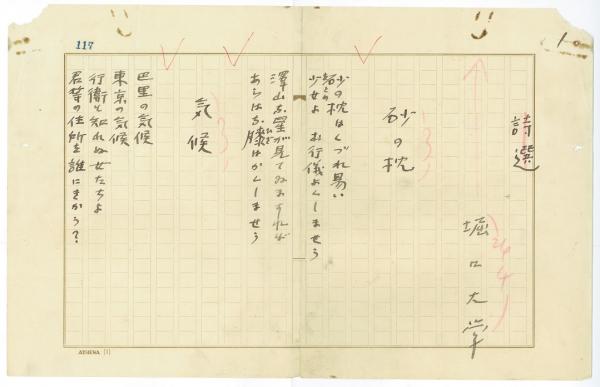 詩選
堀口大学
砂の枕
砂の枕はくづれ易い
少女よ お行儀よくしませう
澤山な星が見てゐますれば
あらはな膝はかくしませう
気候
巴里の気候
東京の気候
行衛も知れぬ女たちよ
君等の住所を誰にきかう？
117
ATHENA [1]